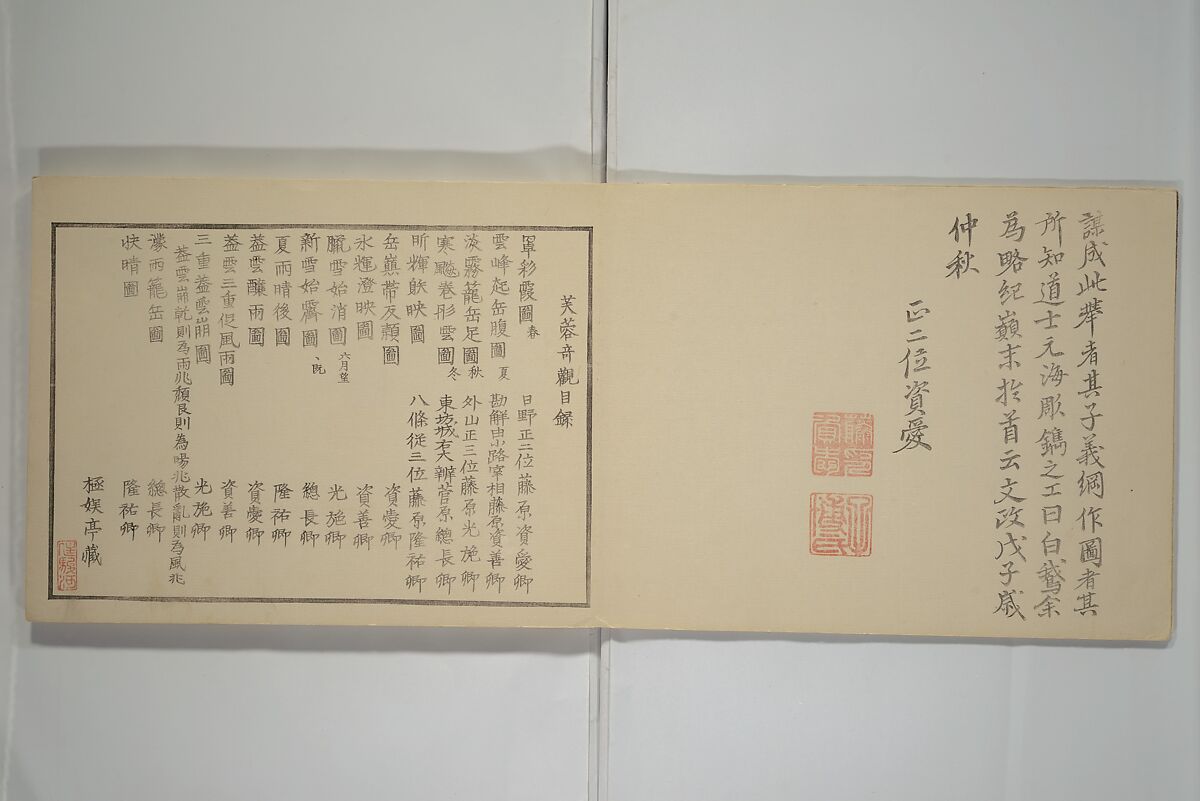 謀成此舉者其子義綱作圖者其
所知道士元海彫鐫之工曰白鵞余
為略紀巔末於首云文政戊子歳
仲秋
正二位資愛
芙蓉奇觀目録
罩彩霞圖 春 日野正二位藤原資愛卿
雲峰起岳腹圖 夏 勘解由小路宰相藤原資善卿
淡霧籠岳足圖 秋 外山正三位藤原光施卿
寒颷卷彤雲圖 冬 東坊城右大辨菅原總長卿
昕輝飲映圖 八條從三位藤原隆祐卿
岳巔帶反顏圖 資愛卿
水輝澄映圖 資善卿
臘雪始消圖 六月望 光施卿
新雪始霽圖 總長卿
夏雨晴後圖 隆祐卿
葢雲釀雨圖 資愛卿
葢雲三重促風雨圖 資善卿
三重葢雲崩圖 光施卿
葢雲崩乾則為雨兆頽艮則為暘兆散亂則為風兆
濛雨籠岳圖 總長卿
快晴圖 隆祐卿
極娯亭藏